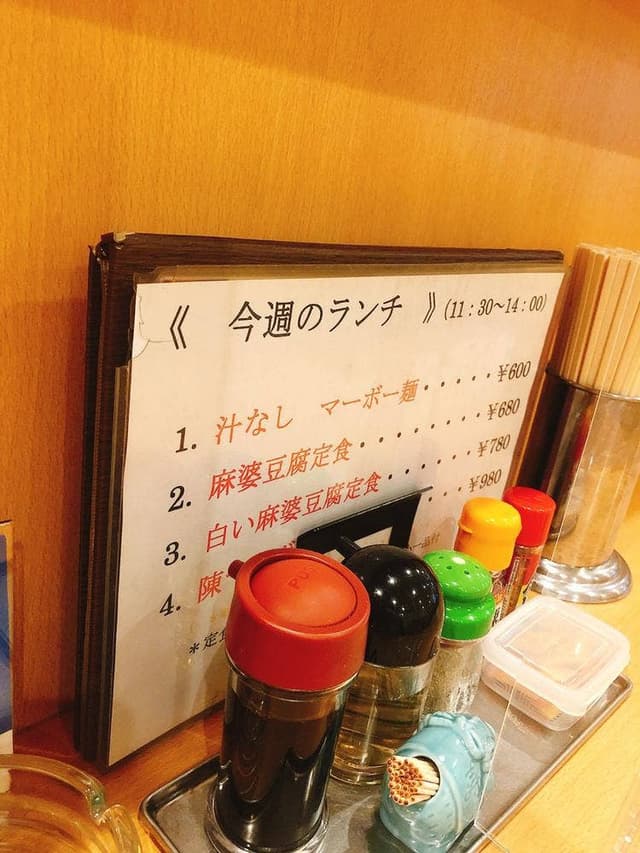 《 今週のランチ 》(11：30～14：00)
1. 汁なし マーボー麺・・・・・¥600
2. 麻婆豆腐定食・・・・・・・・¥680
3. 白い麻婆豆腐定食・・・・・・¥780
4. 陳 ・・・¥980
＊定食